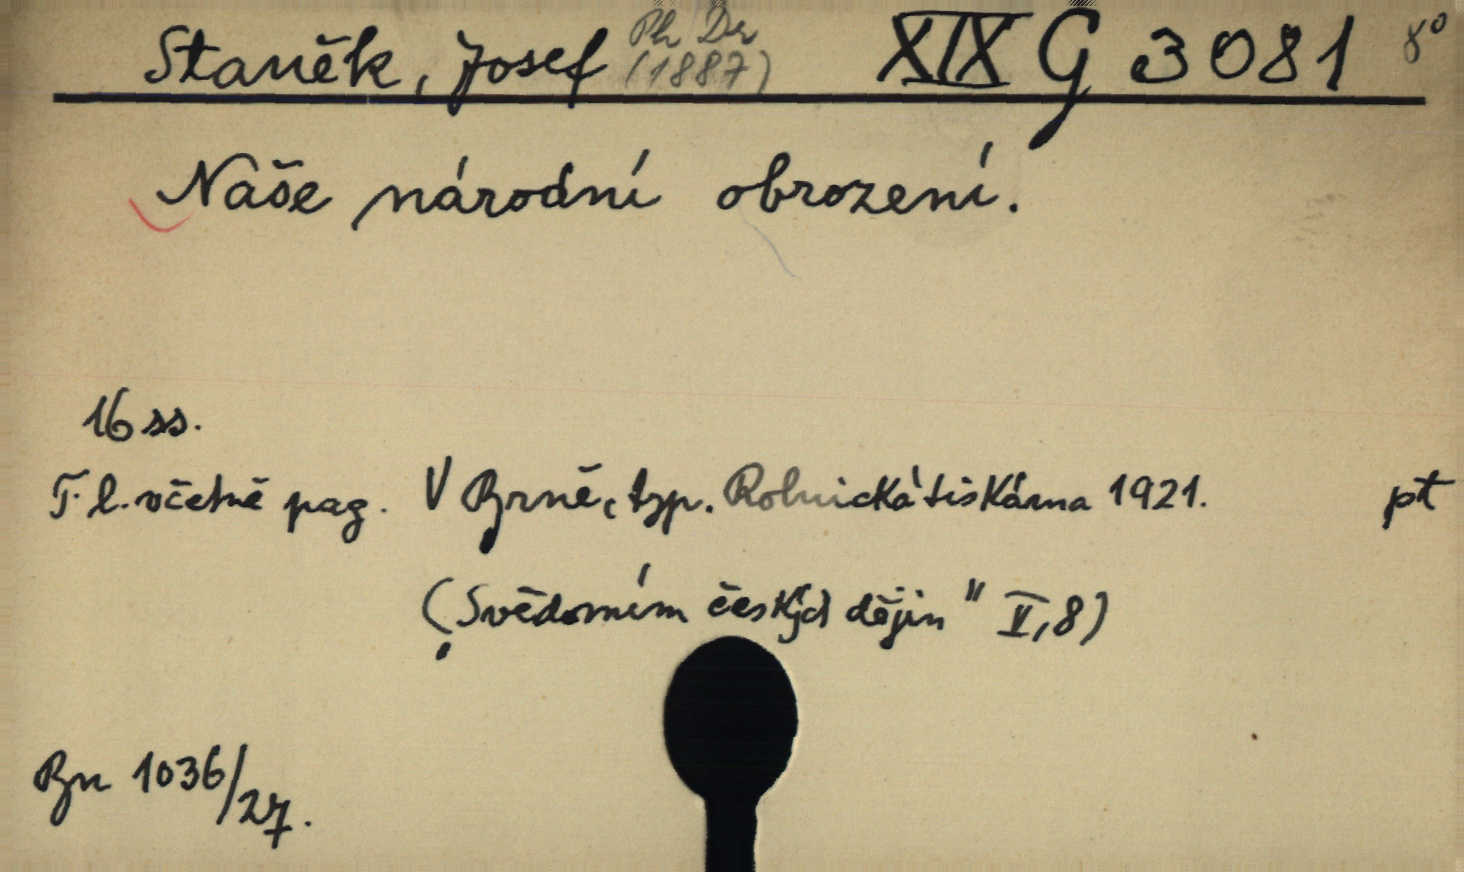 Staněk, Josef Ph Dr (1887) XIX G 3081 8°
Naše národní obrození.
16 ss.
T. l. včetně pag. V Brně, typ. Rolnická tiskárna 1921. pt
("Svědomím českých dějin" II, 8)
1036/27.